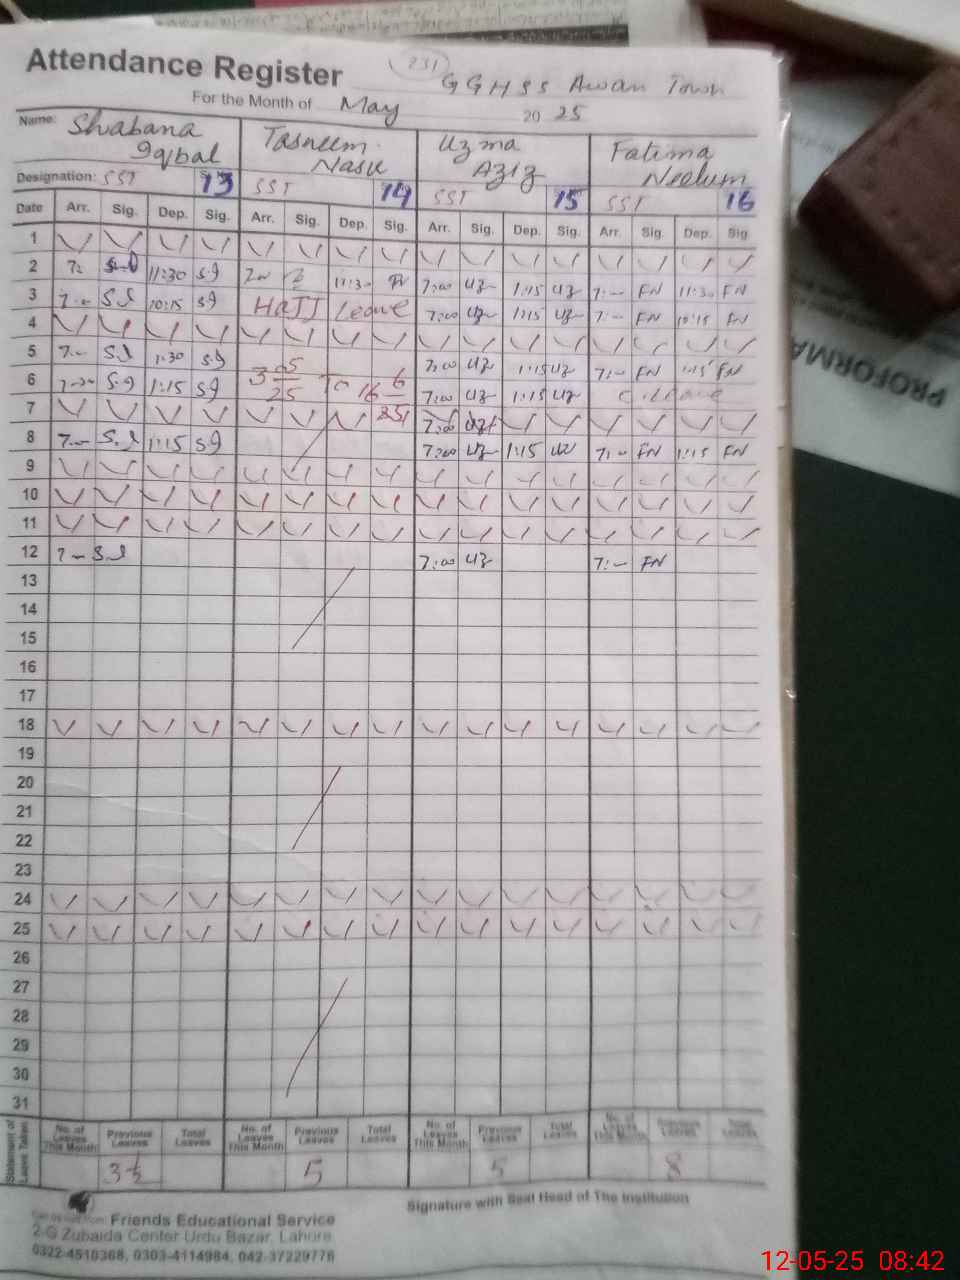 Attendance Register
231
GGHSS Awan Town
For the Month of May 2025
Name: Shabana Iqbal Tasneem Nasir Uzma Aziz Fatima Neelum
Designation: SST 13 SST 14 SST 15 SST 16
Date Arr. Sig. Dep. Sig. Arr. Sig. Dep. Sig. Arr. Sig. Dep. Sig. Arr. Sig. Dep. Sig.
1
2 11:30 11:30 7:00 Uz 1:15 Uz 7:— FN 11:30 FN
3 10:15 Hajj Leave 7:00 Uz 1:15 Uz 7:— FN 10:15 FN
4
5 1:30 3 05 25 To 16 6 25 7:00 Uz 1:15 Uz 7:— FN 1:15 FN
6 1:15 7:00 Uz 1:15 Uz C. Leave
7 7:00
8 1:15 7:00 Uz 1:15 Uz 7:— FN 1:15 FN
9
10
11
12 7:00 Uz 7:— FN
13
14
15
16
17
18
19
20
21
22
23
24
25
26
27
28
29
30
31
Statement of Leave Taken
No. of Leaves This Month Previous Leaves Total Leaves No. of Leaves This Month Previous Leaves Total Leaves No. of Leaves This Month Previous Leaves Total Leaves No. of Leaves This Month Previous Leaves Total Leaves
3½ 5 5 8
Signature with Seal Head of The Institution
Friends Educational Service
2-G Zubaida Center Urdu Bazar, Lahore
0322-4510368, 0303-4114984, 042-37229776
PROFORMA
12-05-25 08:42